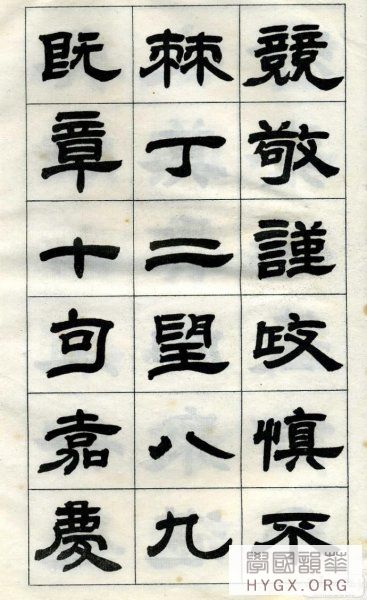 競敬謹慎不
棘丁二望八九
既章十句嘉慶
學國韻華
HYGX.ORG